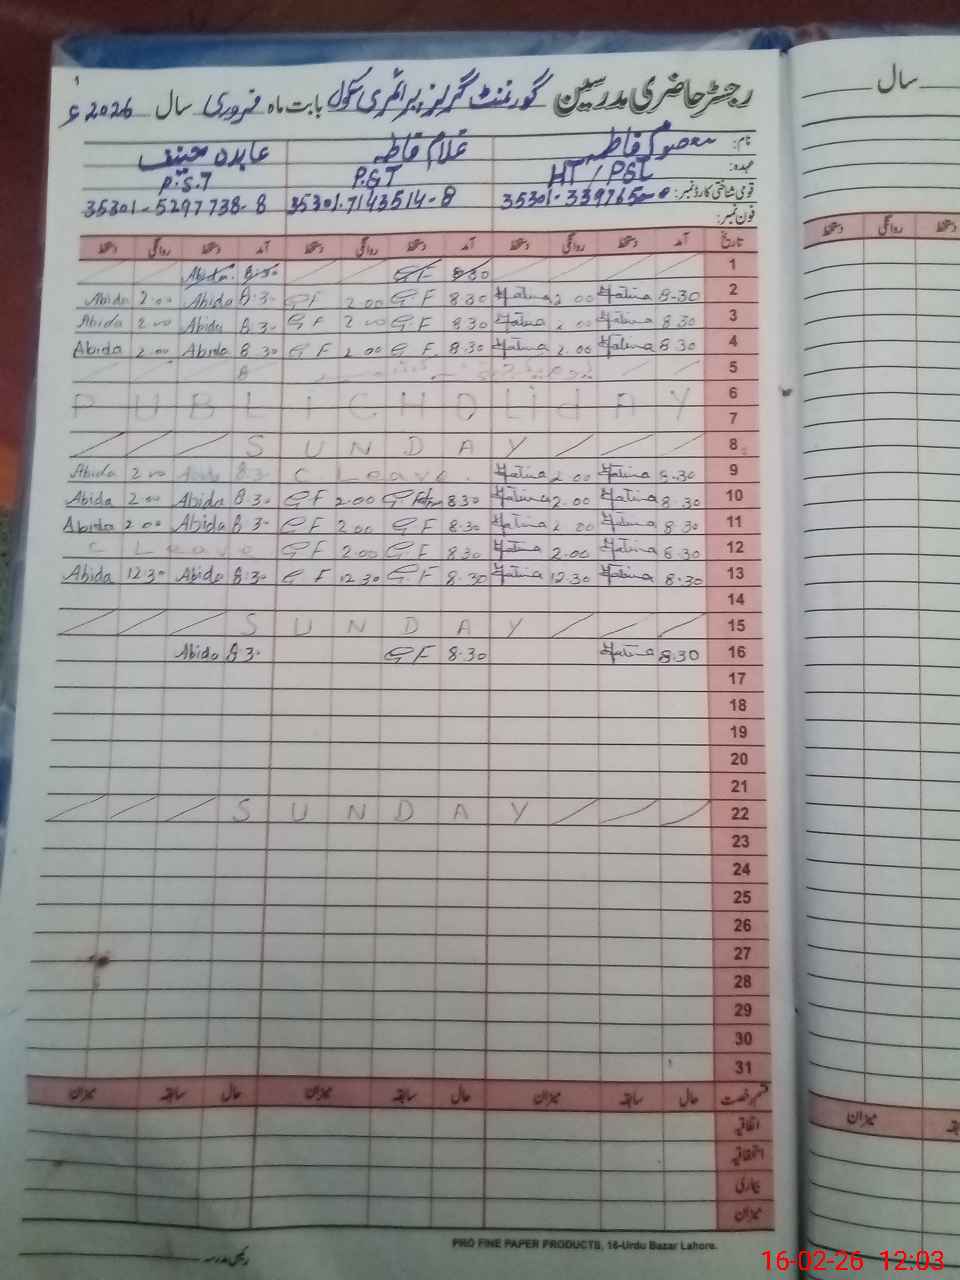 1
رجسٹر حاضری مدرسین گورنمنٹ گرلز پرائمری سکول بابت ماہ فروری سال 2026ء
سال
نام: معصوم فاطمہ غلام فاطمہ عابدہ حنیف
عہدہ: HT / PST P.S.T P.S.T
قومی شناختی کارڈ نمبر: 35301-7143514-8 35301-5297738-8
فون نمبر:
تاریخ آمد دستخط روانگی دستخط آمد دستخط روانگی دستخط آمد دستخط روانگی دستخط
دستخط روانگی دستخط
1 8.30 GF 8.30 Abida
2 8.30 Fatima 2.00 Fatima 8.30 GF 2.00 GF 8.3- Abida 2.00 Abida
3 8.30 Fatima 2.00 Fatima 8.30 GF 2.00 GF 8.3- Abida 2.00 Abida
4 8.30 Fatima 2.00 Fatima 8.30 GF 2.00 GF 8.30 Abida 2.00 Abida
5 8
6
PUBLIC HOLidAY
7
8 SUNDAY
9 8.30 Fatima 2.00 Fatima C Leave. 8.3- 2.00 Abida
10 8.30 Fatima 2.00 Fatima 8.30 GF 2.00 GF 8.30 Abida 2.00 Abida
11 8.30 Fatima 2.00 Fatima 8.30 GF 2.00 GF 8.3- Abida 2.00 Abida
12 8.30 Fatima 2.00 Fatima 8.30 GF 2.00 GF C Leave
13 8.30 Fatima 12.30 Fatima 8.30 GF 12.30 GF 8.3- Abida 12.30 Abida
14
15 SUNDAY
16 8.30 Fatima 8.30 GF 8.3- Abida
17
18
19
20
21
22 SUNDAY
23
24
25
26
27
28
29
30
31
قسم رخصت حال سابقہ میزان حال سابقہ میزان حال سابقہ میزان
میزان
اتفاقیہ
استحقاقیہ
بیماری
میزان
PRO FINE PAPER PRODUCTS, 16-Urdu Bazar Lahore.
رئیس مدرسہ
16-02-26 12:03